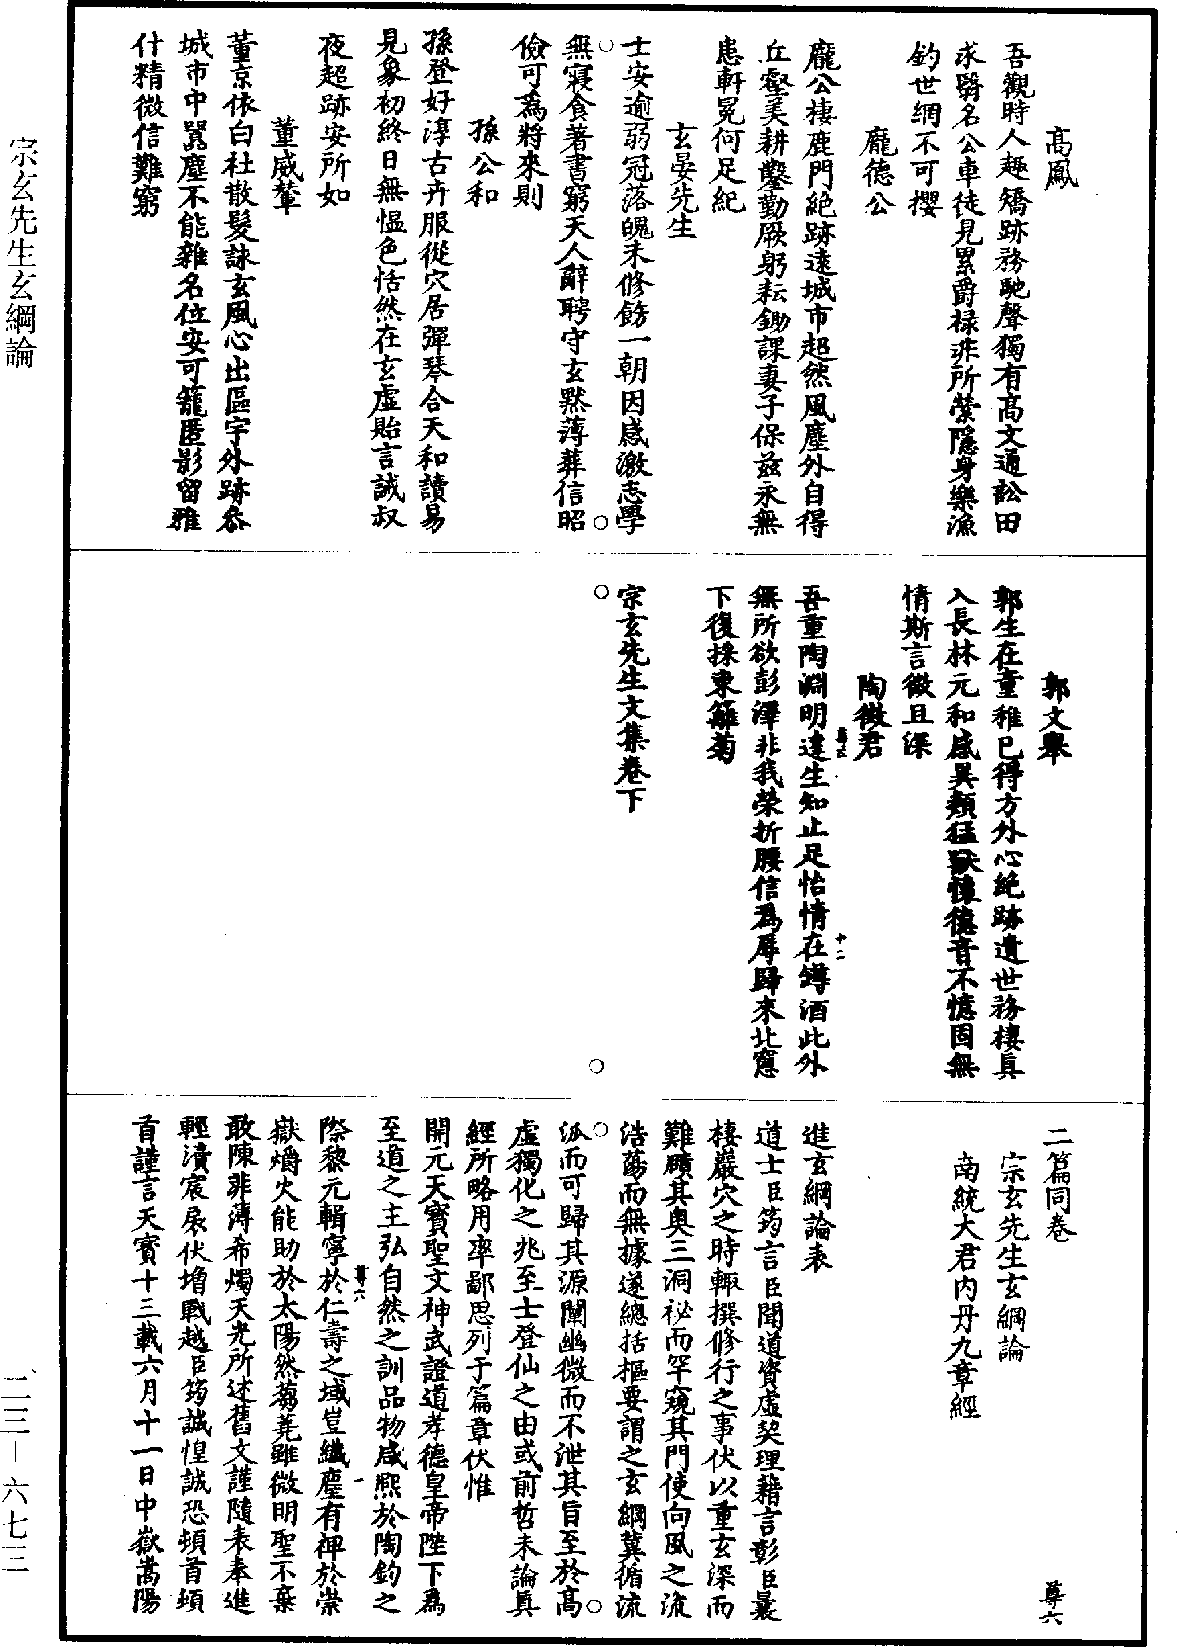 高鳳
吾觀時人趣矯跡務馳聲獨有高文通訟田
求醫名公車徒見累爵祿非所縈隱身樂漁
釣世網不可攖
龐德公
龐公棲鹿門絕跡遠城市超然風塵外自得
丘壑美耕鑿勤厥躬耘鋤課妻子保茲永無
患軒冕何足紀
玄晏先生
士安逾弱冠落魄未修飭一朝因感激志學
無寢食著書窮天人辭聘守玄默薄葬信昭
儉可為將來則
孫公和
孫登好淳古卉服從穴居彈琴合天和讀易
見象初終日無慍色恬然在玄虛貽言誡叔
夜超跡安所如
董威輦
董京依白社散髮詠玄風心出區宇外跡參
城市中囂塵不能雜名位安可籠匿影留雅
什精微信難窮
郭文舉
郭生在童稚已得方外心絕跡遺世務棲真
入長林元和感異類猛獸懷德音不憶固無
情斯言微且深
陶徵君
吾重陶淵明達生知止足怡情在罇酒此外
無所欲彭澤非我榮折腰信為辱歸來北窻
下復採東籬菊
尊五
十二
宗玄先生文集卷下
二篇同卷
尊六
宗玄先生玄綱論
南統大君內丹九章經
進玄綱論表
道士臣筠言臣聞道資虛契理藉言彰臣曩
棲巖穴之時輒撰修行之事伏以重玄深而
難賾其奧三洞祕而罕窺其門使向風之流
浩蕩而無據遂總括樞要謂之玄綱冀循流
派而可歸其源闡幽微而不泄其旨至於高
虛獨化之兆至士登仙之由或前哲未論真
經所略用率鄙思列于篇章伏惟
開元天寶聖文神武證道孝德皇帝陛下為
至道之主弘自然之訓品物咸熙於陶鈞之
際黎元輯寧於仁壽之域豈纖塵有裨於崇
尊六
一
嶽爝火能助於太陽然蒭蕘雖微明聖不棄
敢陳非薄希燭天光所述舊文謹隨表奉進
輕瀆宸扆伏增戰越臣筠誠惶誠恐頓首頓
首謹言天寶十三載六月十一日中嶽嵩陽
宗玄先生玄綱論
二三－六七三